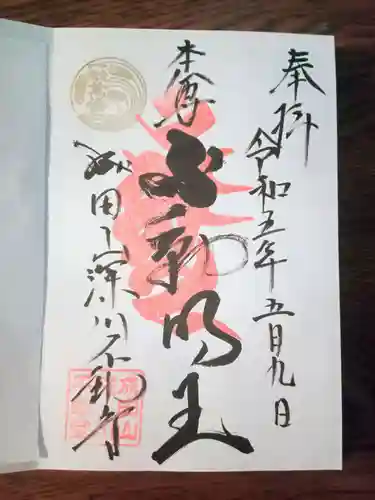 奉拝
令和五年五月九日
本尊
不動明王
成田山深川不動堂